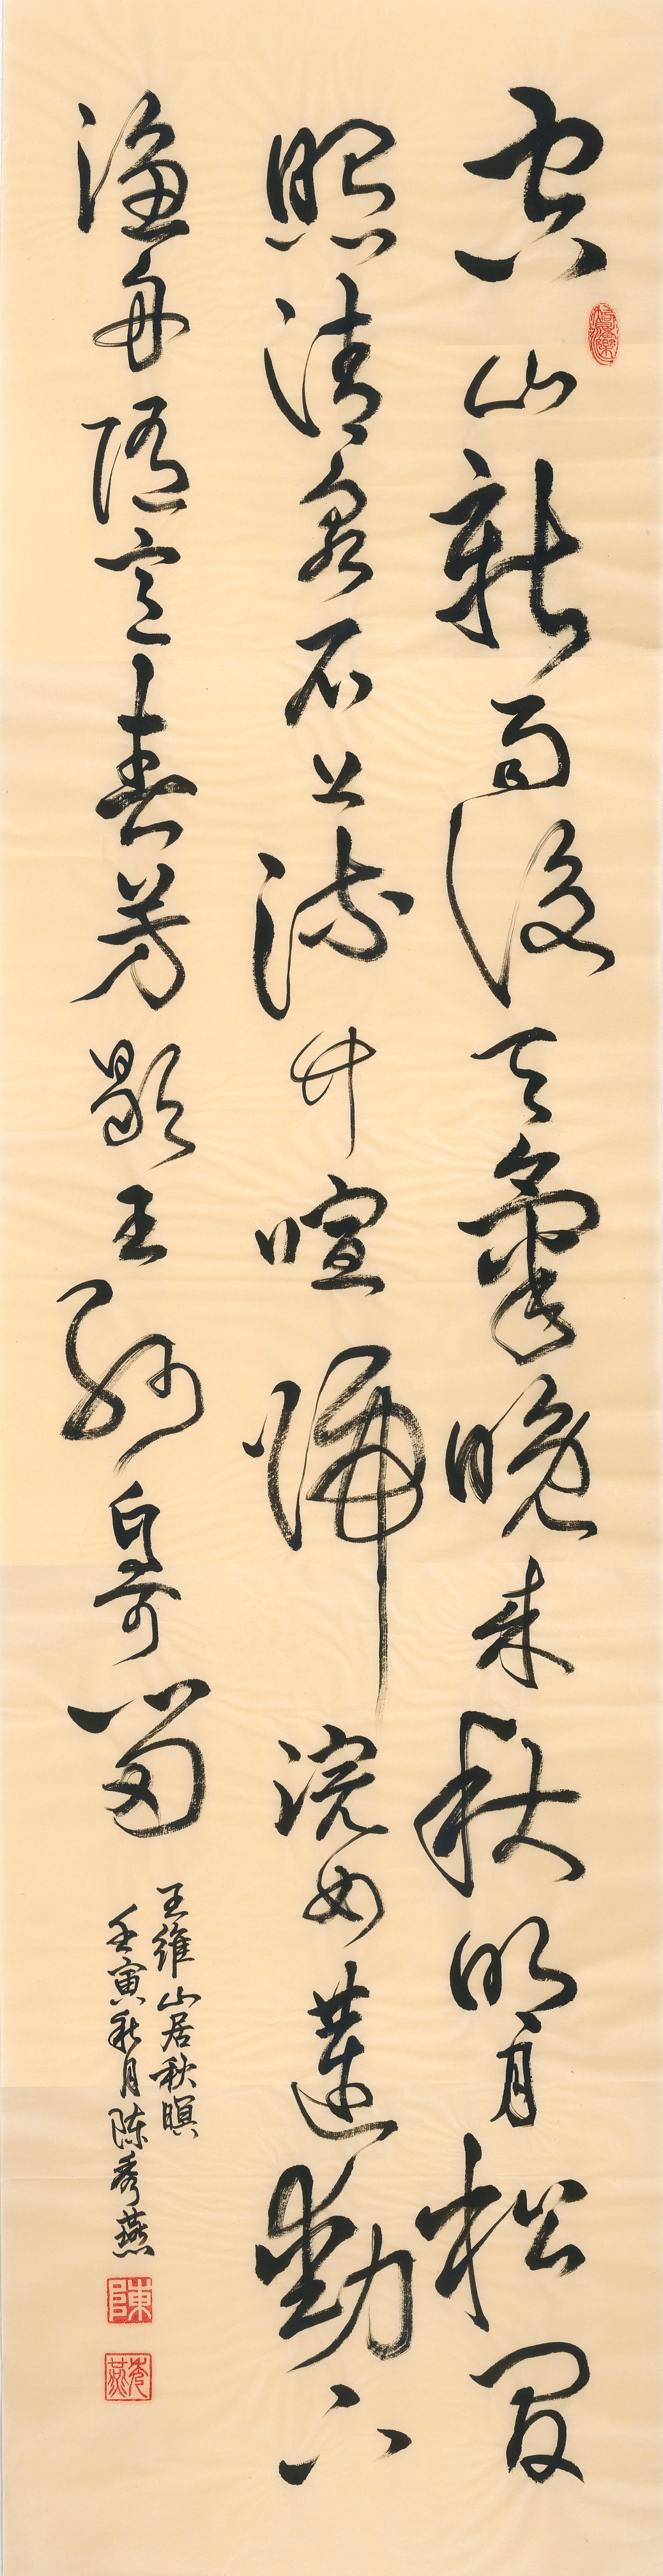 空山新雨後天氣晚來秋明月松間
照清泉石上流竹喧歸浣女蓮動下
漁舟隨意春芳歇王孫自可留
王維山居秋暝
壬寅秋月陈秀燕
陳
秀燕